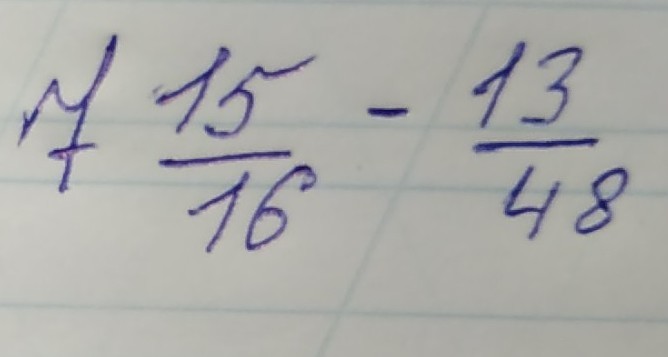 7 15/16 - 13/48